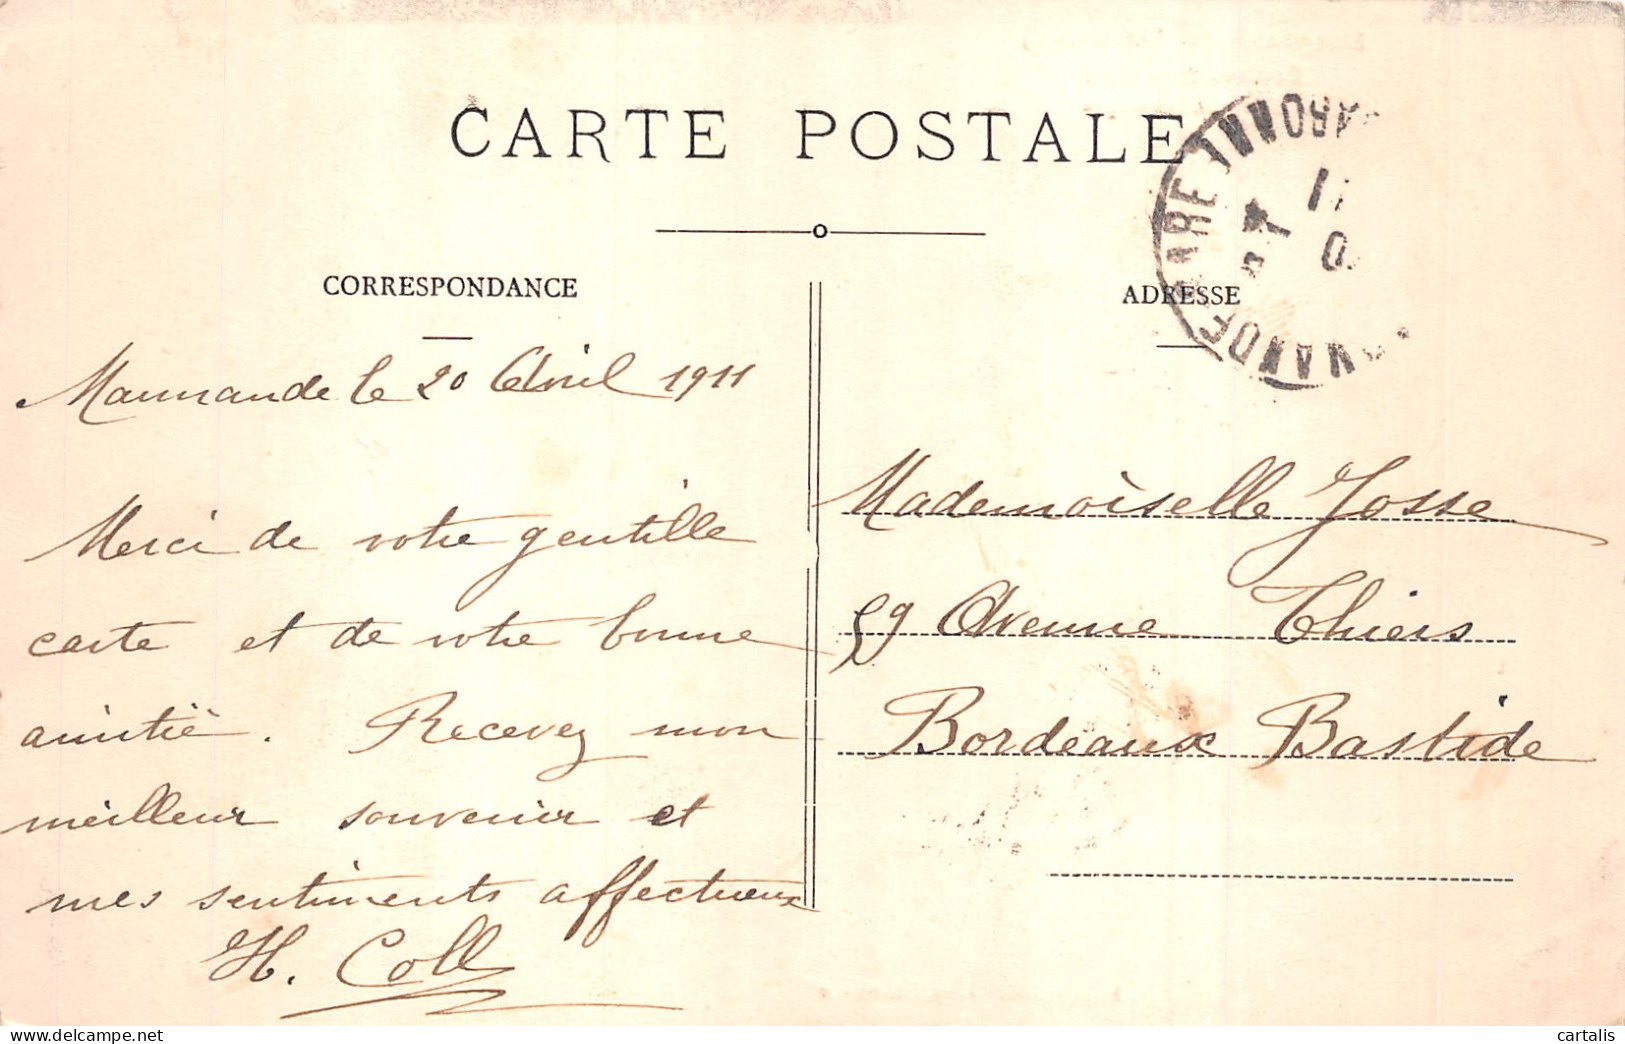 CARTE POSTALE
CORRESPONDANCE
Marmande le 20 Avril 1911
Merci de votre gentille
carte et de votre bonne
amitié. Recevez mon
meilleur souvenir et
mes sentiments affectueux
H. Coll
ADRESSE
Mademoiselle Josse
59 Avenue Thiers
Bordeaux Bastide
GARONNE
11
cartalis